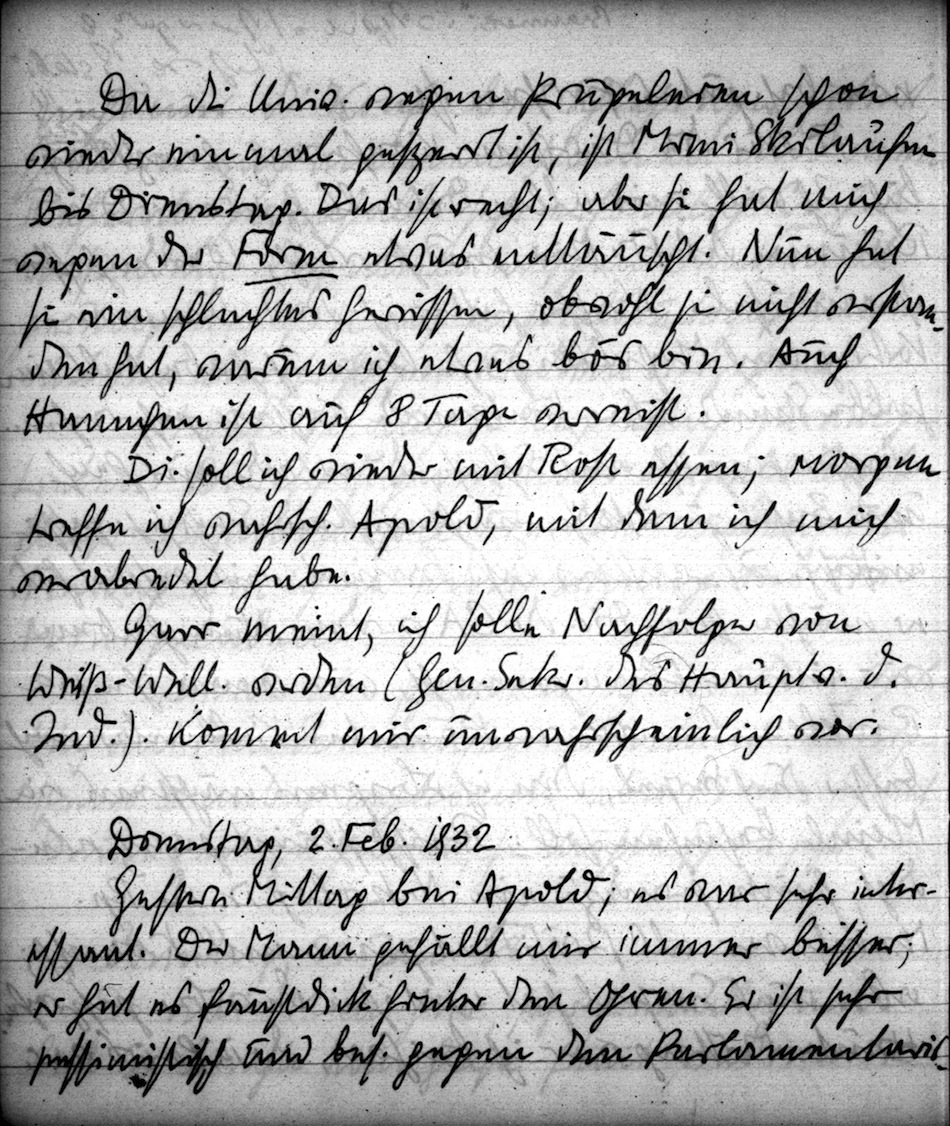 Da die Univ. wegen Prügeleien schon
wieder einmal gesperrt ist, ist Mimi Skilaufen
bis Dienstag. Das ist recht; aber sie hat mich
wegen der Form etwas enttäuscht. Nun hat
sie ein schlechtes Gewissen, obwohl sie nicht verstan-
den hat, warum ich etwas bös bin. Auch
Hannchen ist auf 8 Tage verreist.
Di. soll ich wieder mit Rost essen; morgen
treffe ich wahrsch. Apold, mit dem ich mich
verabredet habe.
Garr meint, ich solle Nachfolger von
Weiß-Well. werden (Gen. Sekr. des Hauptv. d.
Ind.). Kommt mir unwahrscheinlich vor.
Donnerstag, 2. Feb. 1932
Gestern Mittag bei Apold; es war sehr inter-
essant. Der Mann gefällt mir immer besser;
er hat es faustdick hinter den Ohren. Er ist sehr
pessimistisch und bes. gegen den Parlamentaris-